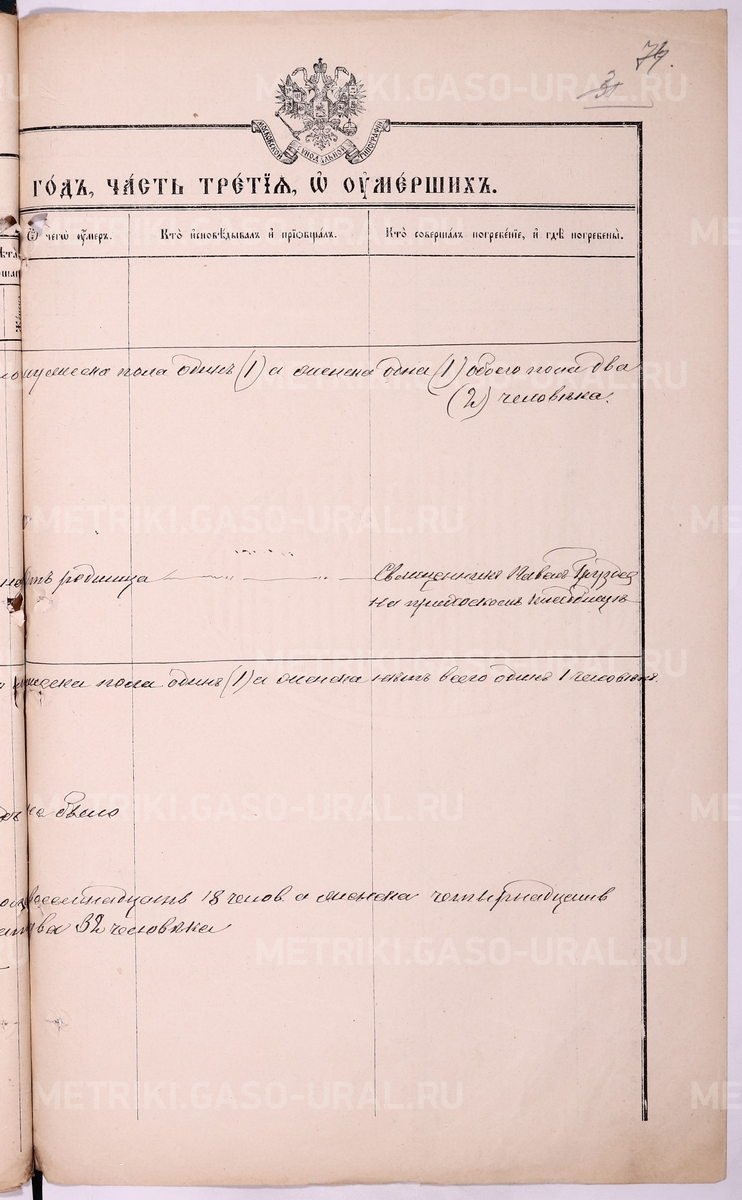 74.
31
МОСКОВСКОЙ СѴНОДАЛЬНОЙ ТИПОГРАФІИ
ГОДЪ, ЧАСТЬ ТРЕТІЯ, Ѡ ОУМЕРШИХЪ.
Ѿ чегѡ оумеръ.
Кто исповѣдывалъ и пріобщалъ.
Кто совершалъ погребеніе, и гдѣ погребены.
мужеска пола одинъ (1) а женска одна (1) обоего пола два
(2) человѣка.
родимца Священникъ Павелъ
на приходскомъ кладбищѣ
пола одинъ (1) а женска нѣтъ всего одинъ 1 человѣкъ
не было
восемнадцать 18 челов. а женска четырнадцать
два 32 человѣка
METRIKI.GASO-URAL.RU